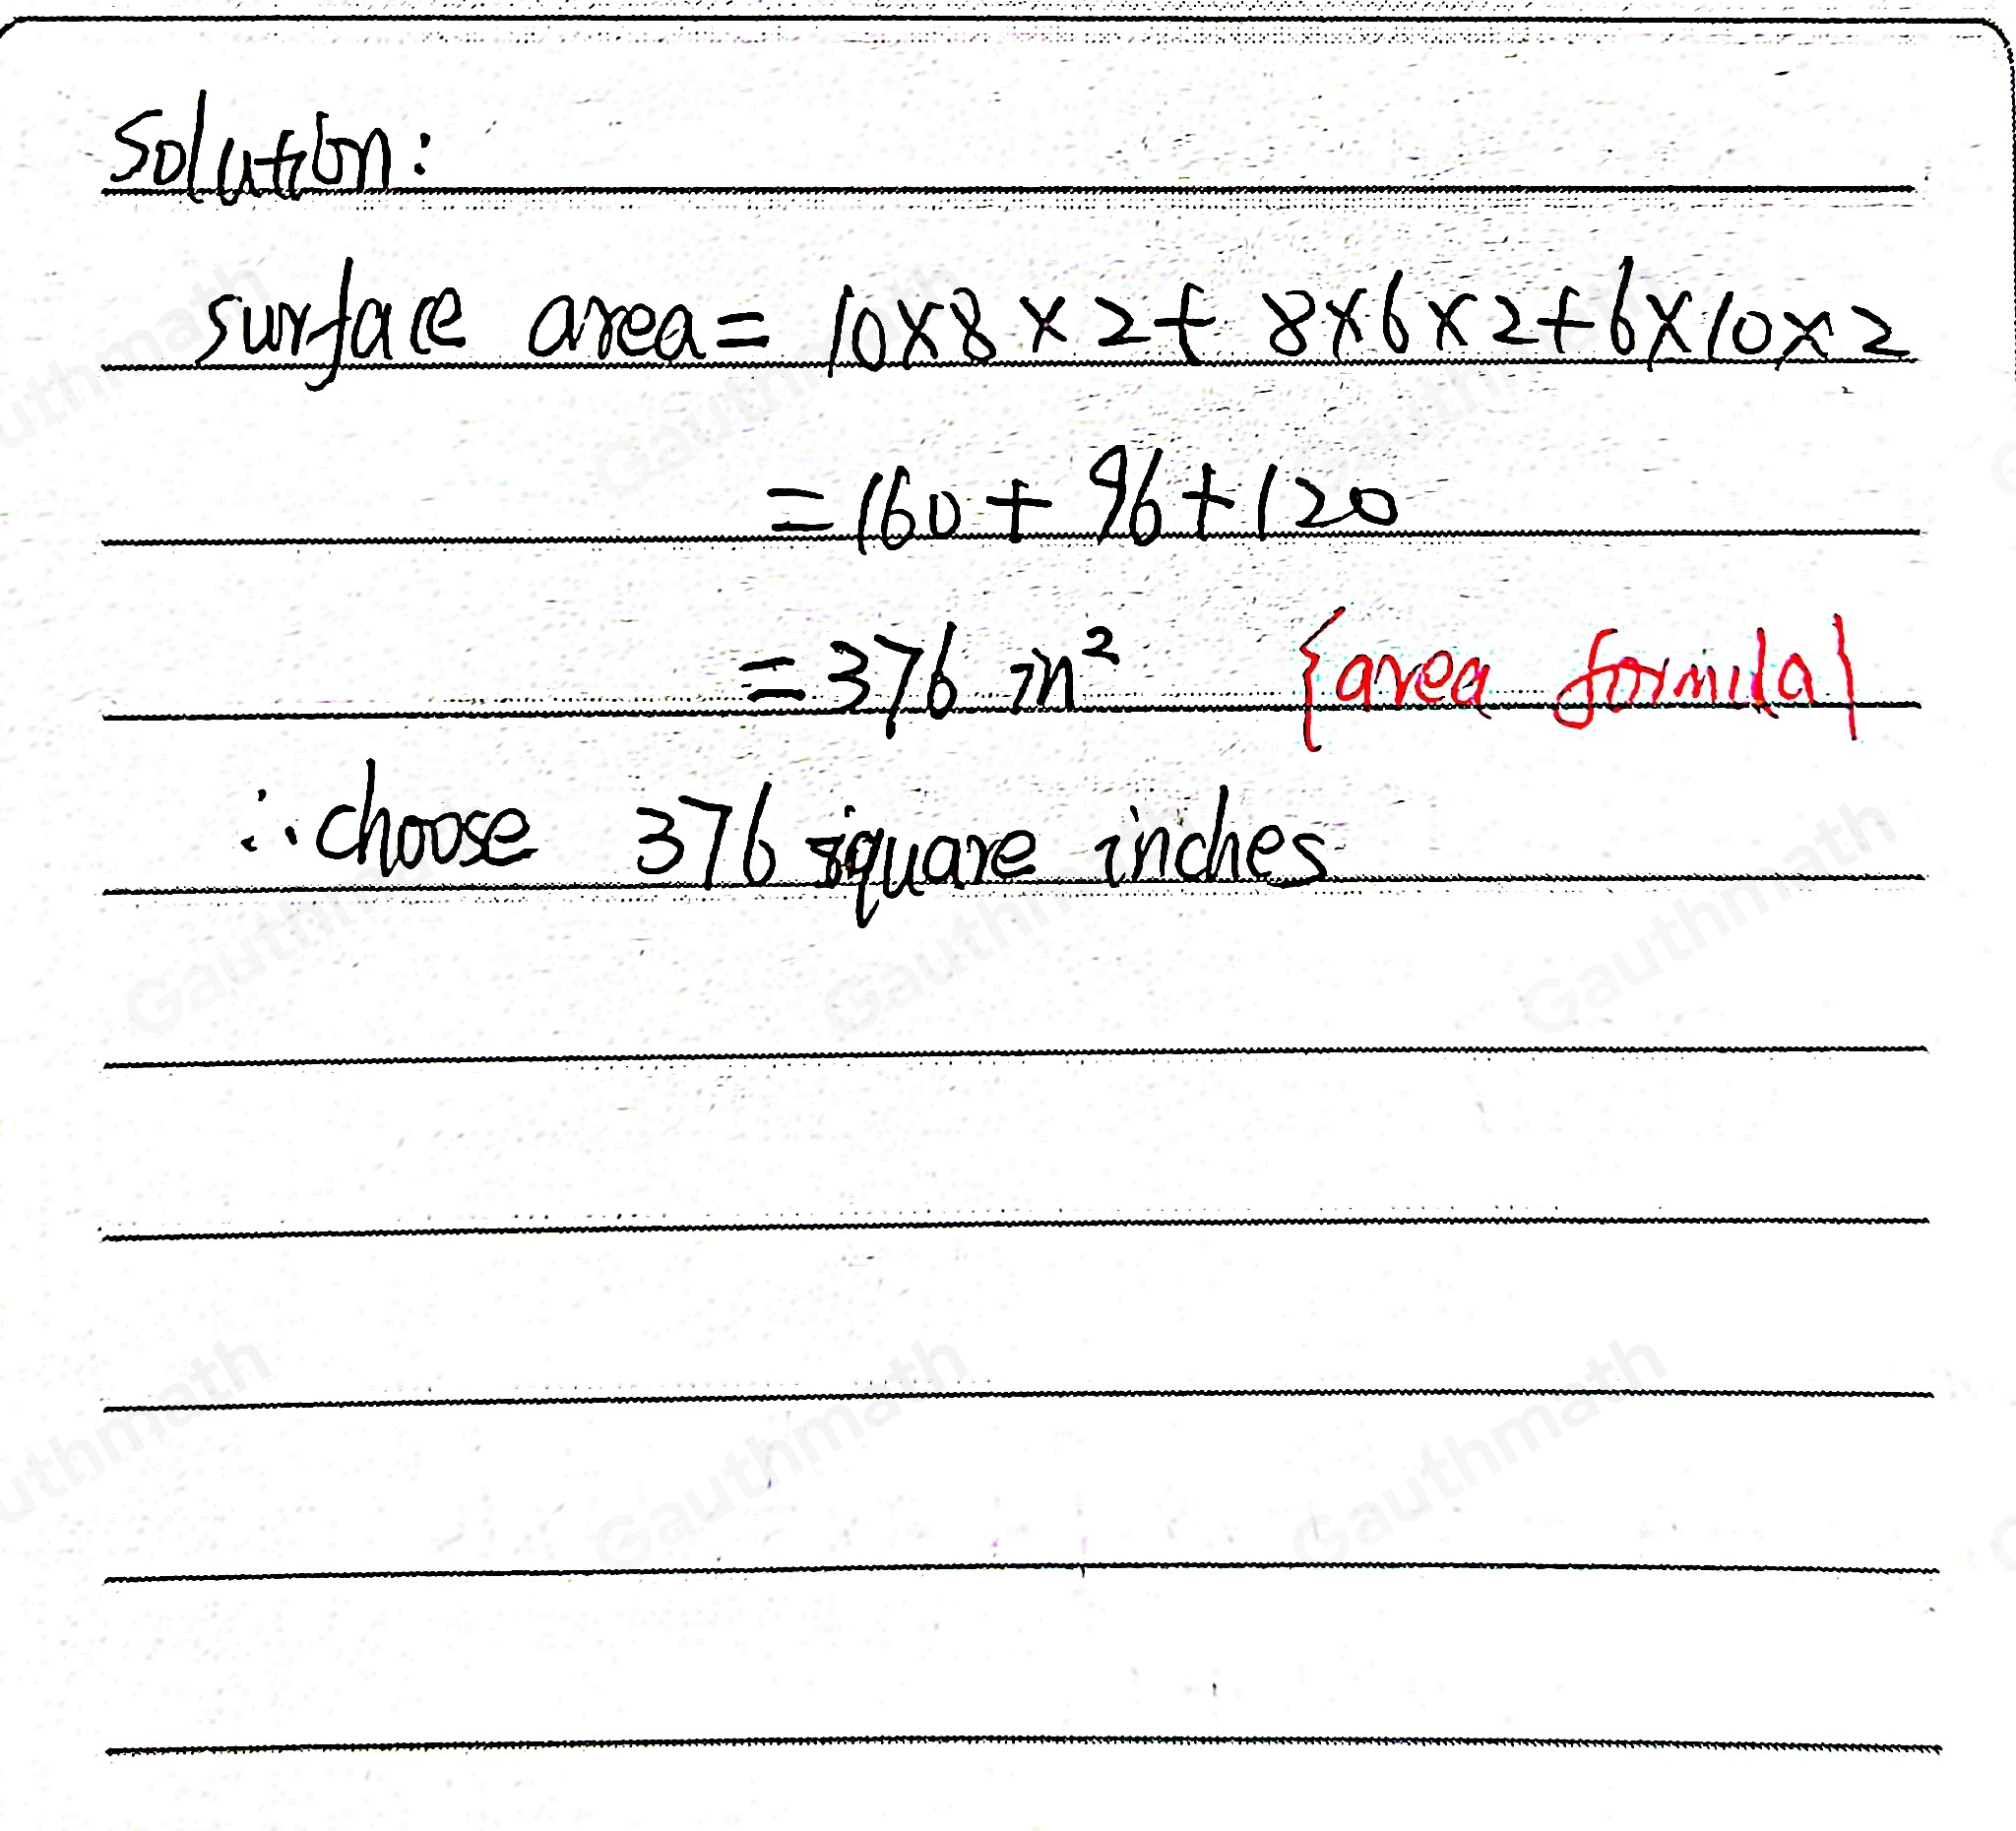 Solution:
surface area = 10×8×2+ 8×6×2+6×10×2
=160+ 96+120
=376 in² {area formula}
∴choose 376 square inches
Gauthmath